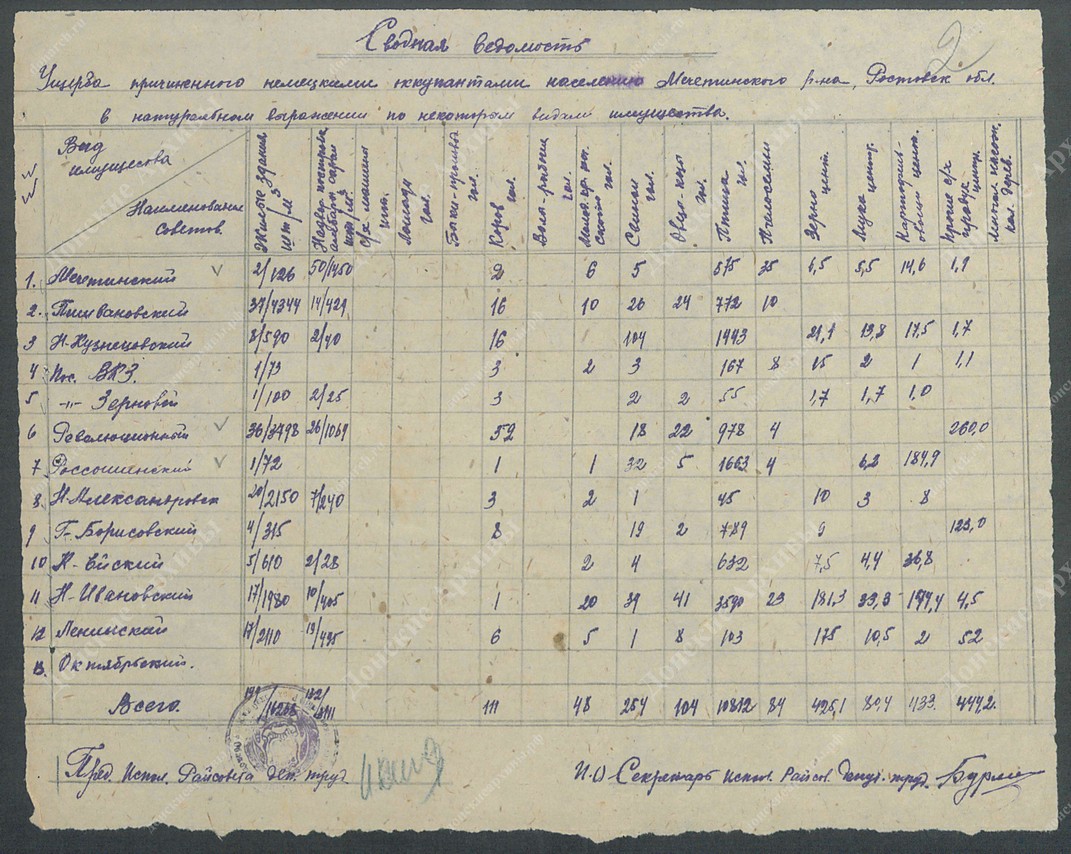 2
Сводная ведомость
Ущерба причиненного немецкими оккупантами населению Мечетинского р-на, Ростовск обл.
в натуральном выражении по некоторым видам имущества.
Вид имущества
Наименование советов
Жилые здания шт/м³
Надвор. построй. амбары сараи
с/х машины шт.
Лошади гол.
Быки гол.
Коров гол.
гол.
скота гол.
Свиньи гол.
Овцы-козы гол.
Птица гол.
Пчелосемьи
Зерно цент.
Мука центр.
центн.
Прочие с/х продук. центр.
1. Мечетинский 2/126 50/1450 2 6 5 575 35 6,5 5,5 14,6 1,9
2. 37/4344 14/429 16 10 26 24 772 10
3 Н-Кузнецовский 8/590 2/40 16 104 1443 21,1 13,8 17,5 1,7
4 Пос. ВРЗ. 1/73 3 2 3 167 8 15 2 1 1,1
5 -"- Зерновой 1/100 2/25 3 2 2 55 1,7 1,7 1,0
6 Революционный 36/3498 26/1069 52 18 22 978 4 260,0
7 Россошенский 1/72 1 1 32 5 1663 4 6,2 184,9
8. Н-Александровск 20/2150 7/240 3 2 1 45 10 3 8
9 Г-Борисовский 4/315 8 19 2 789 9 123,0
10 Н- 5/610 2/28 2 4 632 7,5 4,4 36,8
11 Н-Ивановский 17/1980 10/405 1 20 39 41 3590 23 181,3 33,3 4,5
12 Ленинский 17/2110 19/495 6 5 1 8 103 175 10,5 2 52
13. Октябрьский.
Всего 111 48 254 104 10812 84 425,1 80,4 433 444,2.
Пред. Испол. Райсовета деп. труд.
И.О Секретарь испол. Райсов. депут. труд.
Донские Архивы